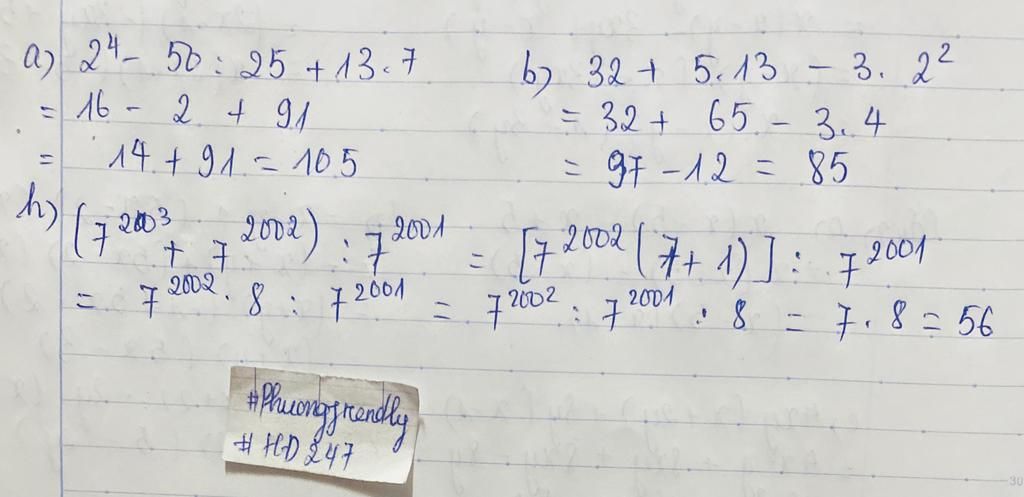 a) 2⁴ - 50 : 25 + 13.7
= 16 - 2 + 91
= 14 + 91 = 105
b) 32 + 5.13 - 3. 2²
= 32 + 65 - 3.4
= 97 - 12 = 85
h) (7²⁰⁰³ + 7²⁰⁰²) : 7²⁰⁰¹ = [7²⁰⁰² (7 + 1)] : 7²⁰⁰¹
= 7²⁰⁰² . 8 : 7²⁰⁰¹ = 7²⁰⁰² : 7²⁰⁰¹ . 8 = 7 . 8 = 56
#Phuongfrendly
# HD 247
30